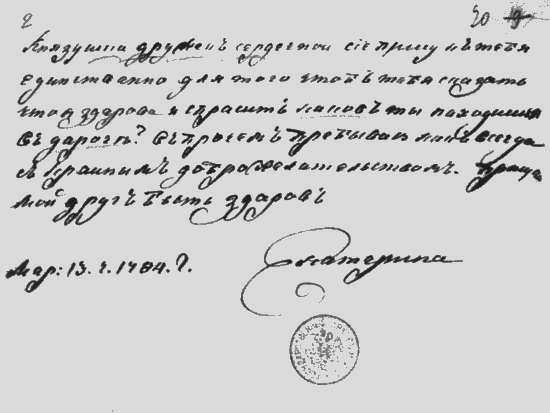 2 20
Князушка дружекъ сердечной сіе пишу къ тебѣ
единственно для того чтобъ тебя сказать
что я здарова и спрасить каковъ ты находишся
въ дароги? въ протчемъ пребываю какъ всегда
съ крайнымъ доброжелательствомъ.
мой другъ быть здаровъ
Мар: 13. ч. 1784. г.
Екатерина